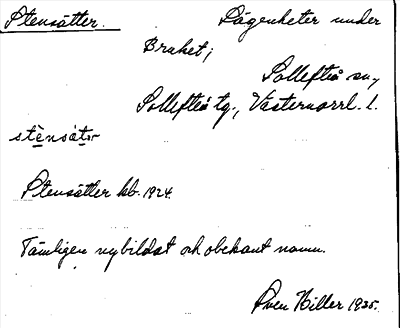 Stensätter. Lägenheter under
Bruket;
Sollefteå sn,
Sollefteå tg., Västernorrl. l.
stènsä̀tər
Stensätter kb. 1924.
Tämligen nybildat och obekant namn.
Sven Hiller 1935.